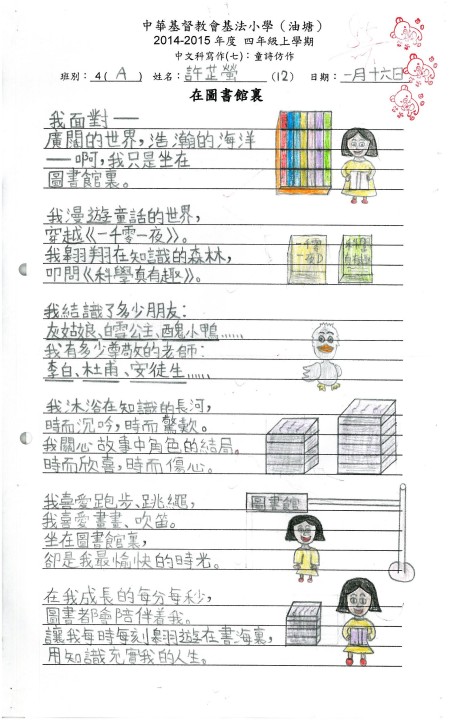 中華基督教會基法小學（油塘）
2014-2015 年度 四年級上學期
中文科寫作(七)：童詩仿作
班別：4( A ) 姓名：許芷螢 (12) 日期：一月十六日
在圖書館裏
我面對──
廣闊的世界，浩瀚的海洋
──啊，我只是坐在
圖書館裏。
我漫遊童話的世界，
穿越《一千零一夜》。
我翱翔在知識的森林，
叩問《科學真有趣》。
一千零
一夜
科學
真有趣
我結識了多少朋友：
灰姑娘、白雪公主、醜小鴨……
我有多少尊敬的老師：
李白、杜甫、安徒生……
我沐浴在知識的長河，
時而沉吟，時而驚歎。
我關心故事中角色的結局。
時而欣喜，時而傷心。
圖書館
我喜愛跑步、跳繩，
我喜愛畫畫、吹笛。
坐在圖書館裏，
卻是我最愉快的時光。
在我成長的每分每秒，
圖書都會陪伴着我。
讓我每時每刻翱遊在書海裏，
用知識充實我的人生。